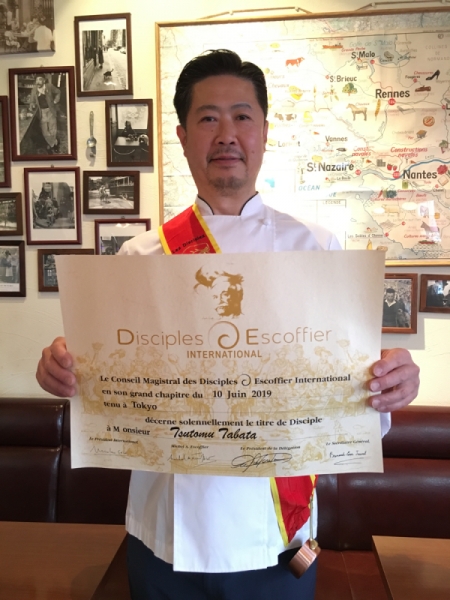 S<sup>t</sup> Malo
S<sup>t</sup> Brieuc
Rennes
Vannes
S<sup>t</sup> Nazaire
Nantes
OCEAN
Disciples Escoffier
INTERNATIONAL
Le Conseil Magistral des Disciples Escoffier International
en son grand chapitre du 10 Juin 2019
tenu à Tokyo
décerne solennellement le titre de Disciple
à Monsieur Tsutomu Tabata
Le Président International
Michel A. Escoffier
Le Président de la Délégation